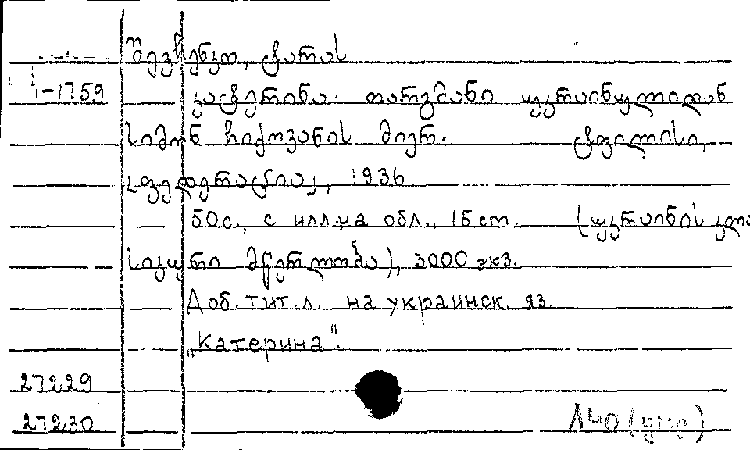 შევჩენკო, ტარას
-1759
კატერინა. თარგმანი უკრაინულიდან
სიმონ ჩიქოვანის მიერ. ტფილისი,
ფედერაცია, 1936
50с., с илл.на обл., 15 cm. (უკრაინის კლა
სიკური მწერლობა), 3000 экз.
Доб. тит. л. на украинск. яз.
„Катерина".
27229
27230